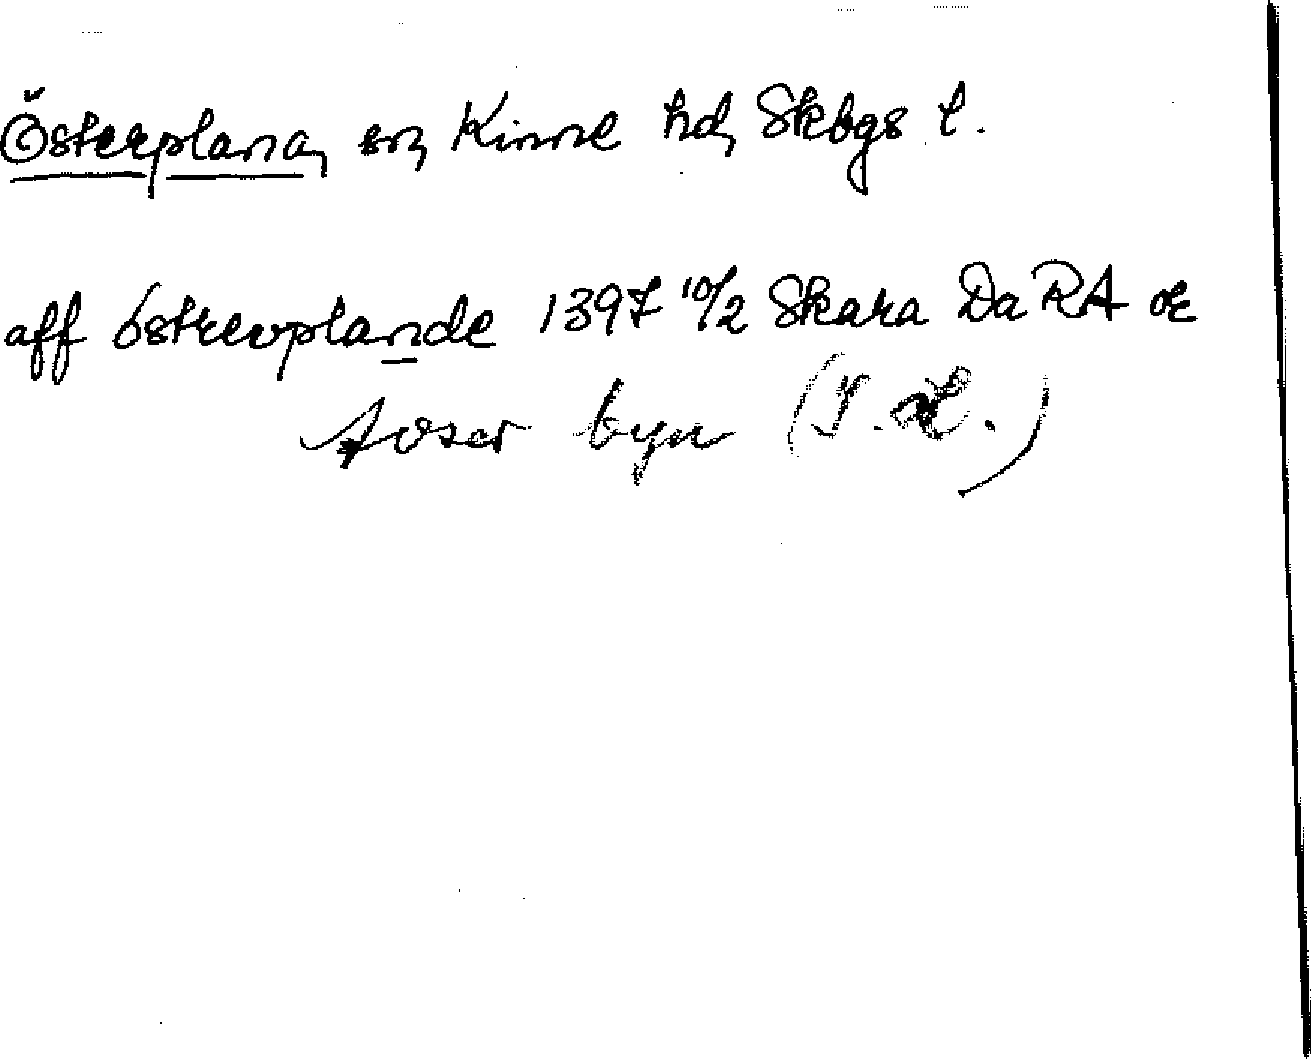 Österplana, sn, Kinne hd, Skbgs l.
aff östrevplande 1397 10/2 Skara DaRA or
Avser byn (I. L.)